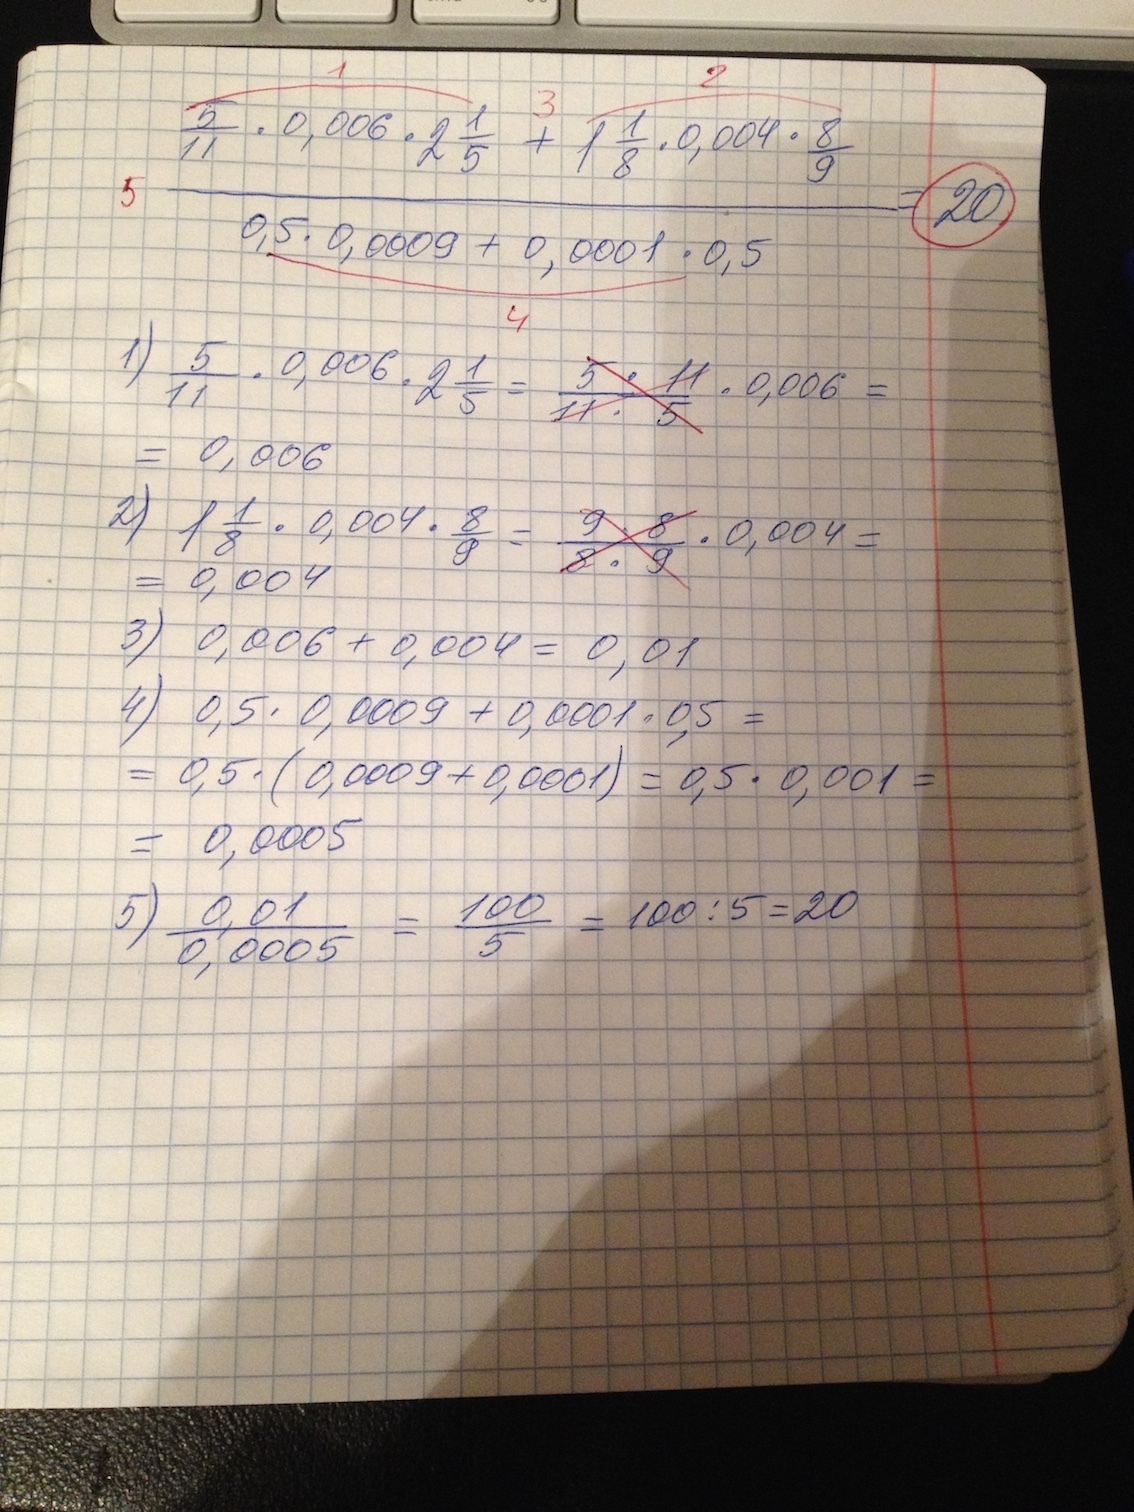 1 2
5/11 · 0,006 · 2 1/5 + 1 1/8 · 0,004 · 8/9
3
5
= 20
0,5 · 0,0009 + 0,0001 · 0,5
4
1) 5/11 · 0,006 · 2 1/5 = 5 · 11/11 · 5 · 0,006 =
= 0,006
2) 1 1/8 · 0,004 · 8/9 = 9 · 8/8 · 9 · 0,004 =
= 0,004
3) 0,006 + 0,004 = 0,01
4) 0,5 · 0,0009 + 0,0001 · 0,5 =
= 0,5 · (0,0009 + 0,0001) = 0,5 · 0,001 =
= 0,0005
5) 0,01/0,0005 = 100/5 = 100 : 5 = 20